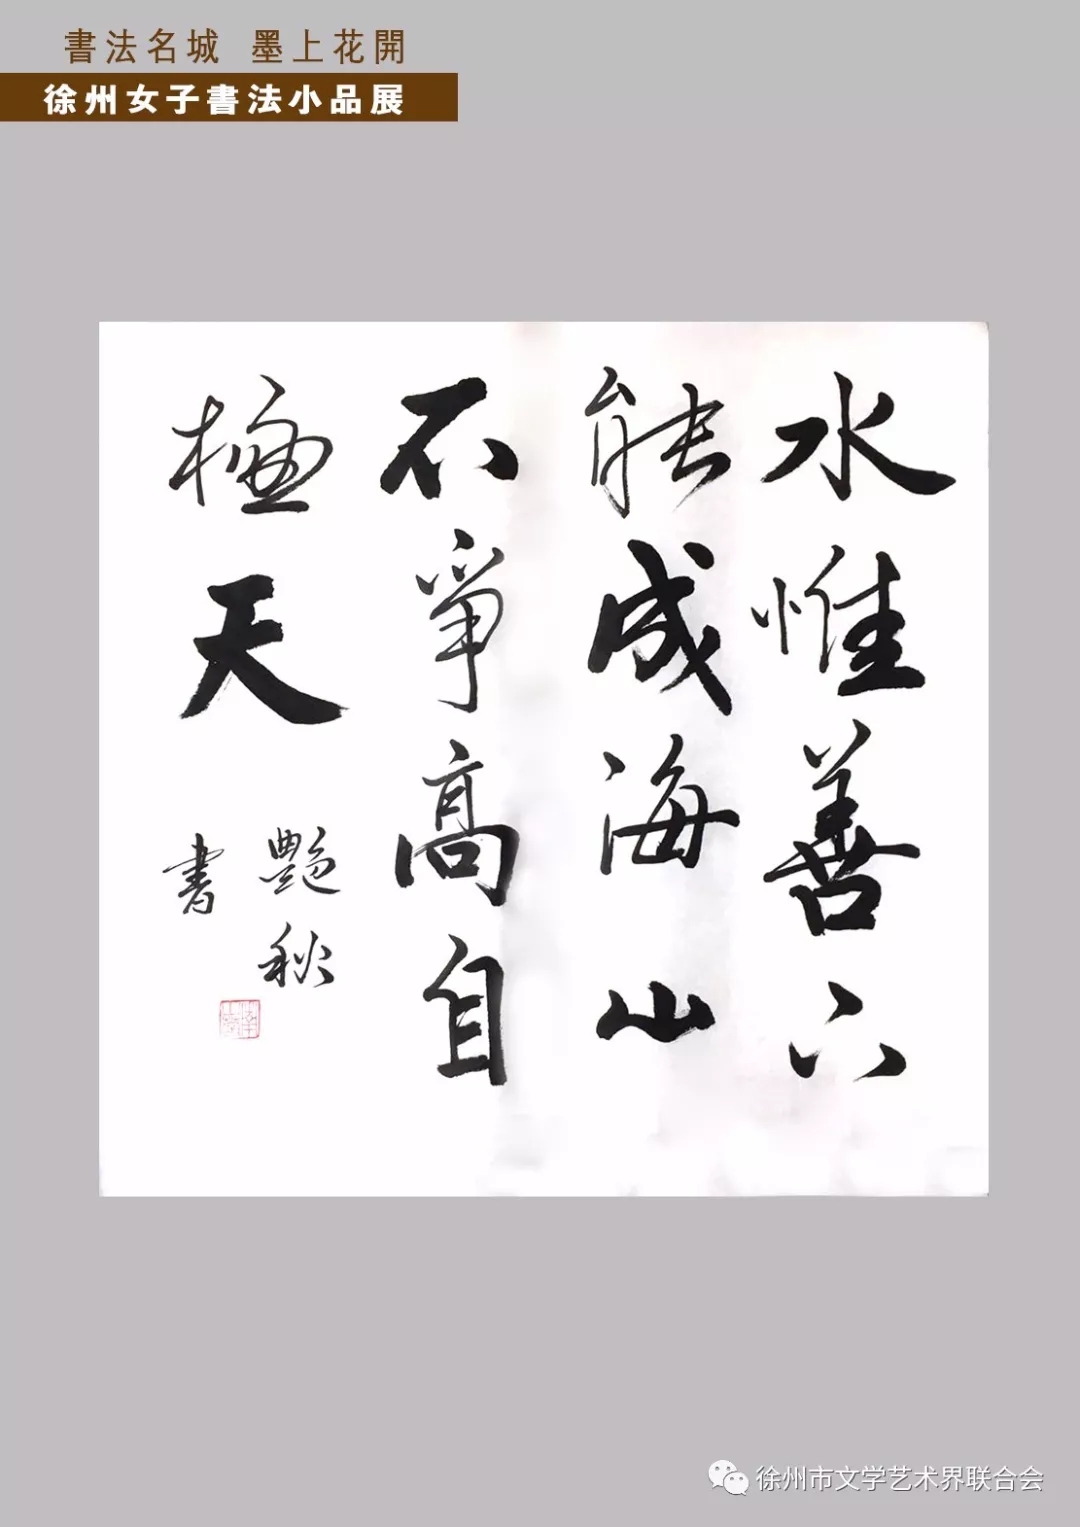 書法名城 墨上花開
徐州女子書法小品展
水惟善下
能成海山
不爭高自
極天
艷秋
書
徐州市文学艺术界联合会